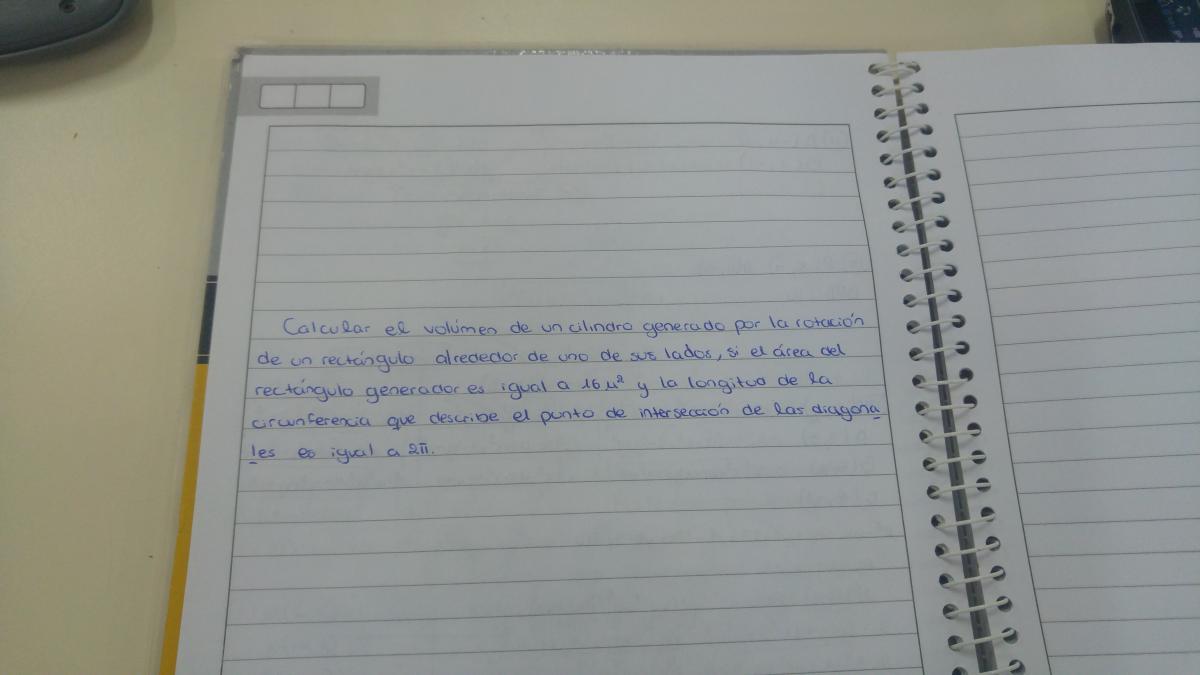 Calcular el volúmen de un cilindro generado por la rotación
de un rectángulo alrededor de uno de sus lados, si el área del
rectángulo generador es igual a 16 μ²  y la longitud de la
circunferencia que describe el punto de intersección de las diagona
les es igual a 2π.